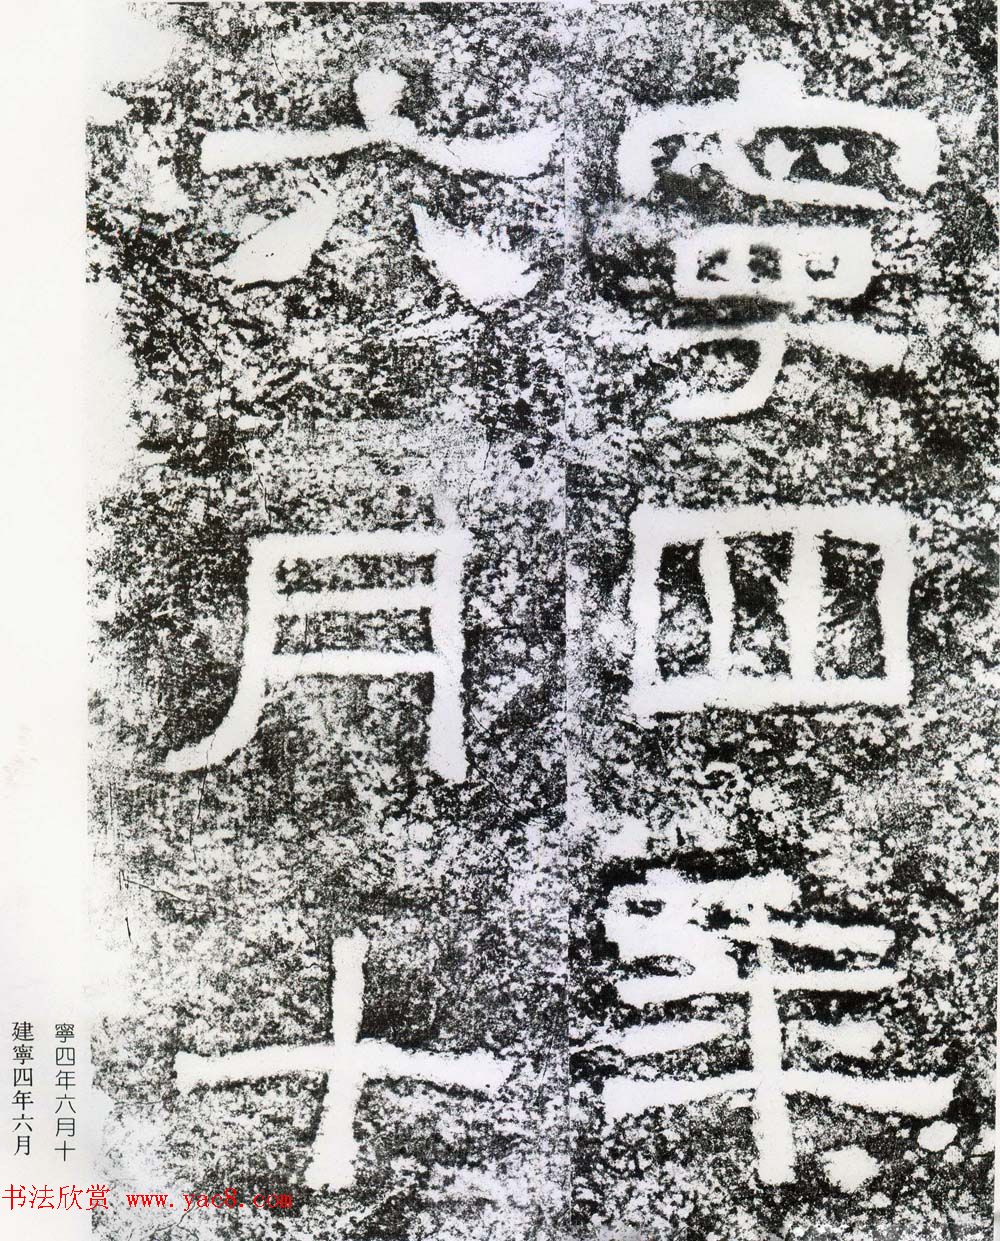 寧四年
六月十
寧四年六月十
建寧四年六月
书法欣赏 www.yac8.com